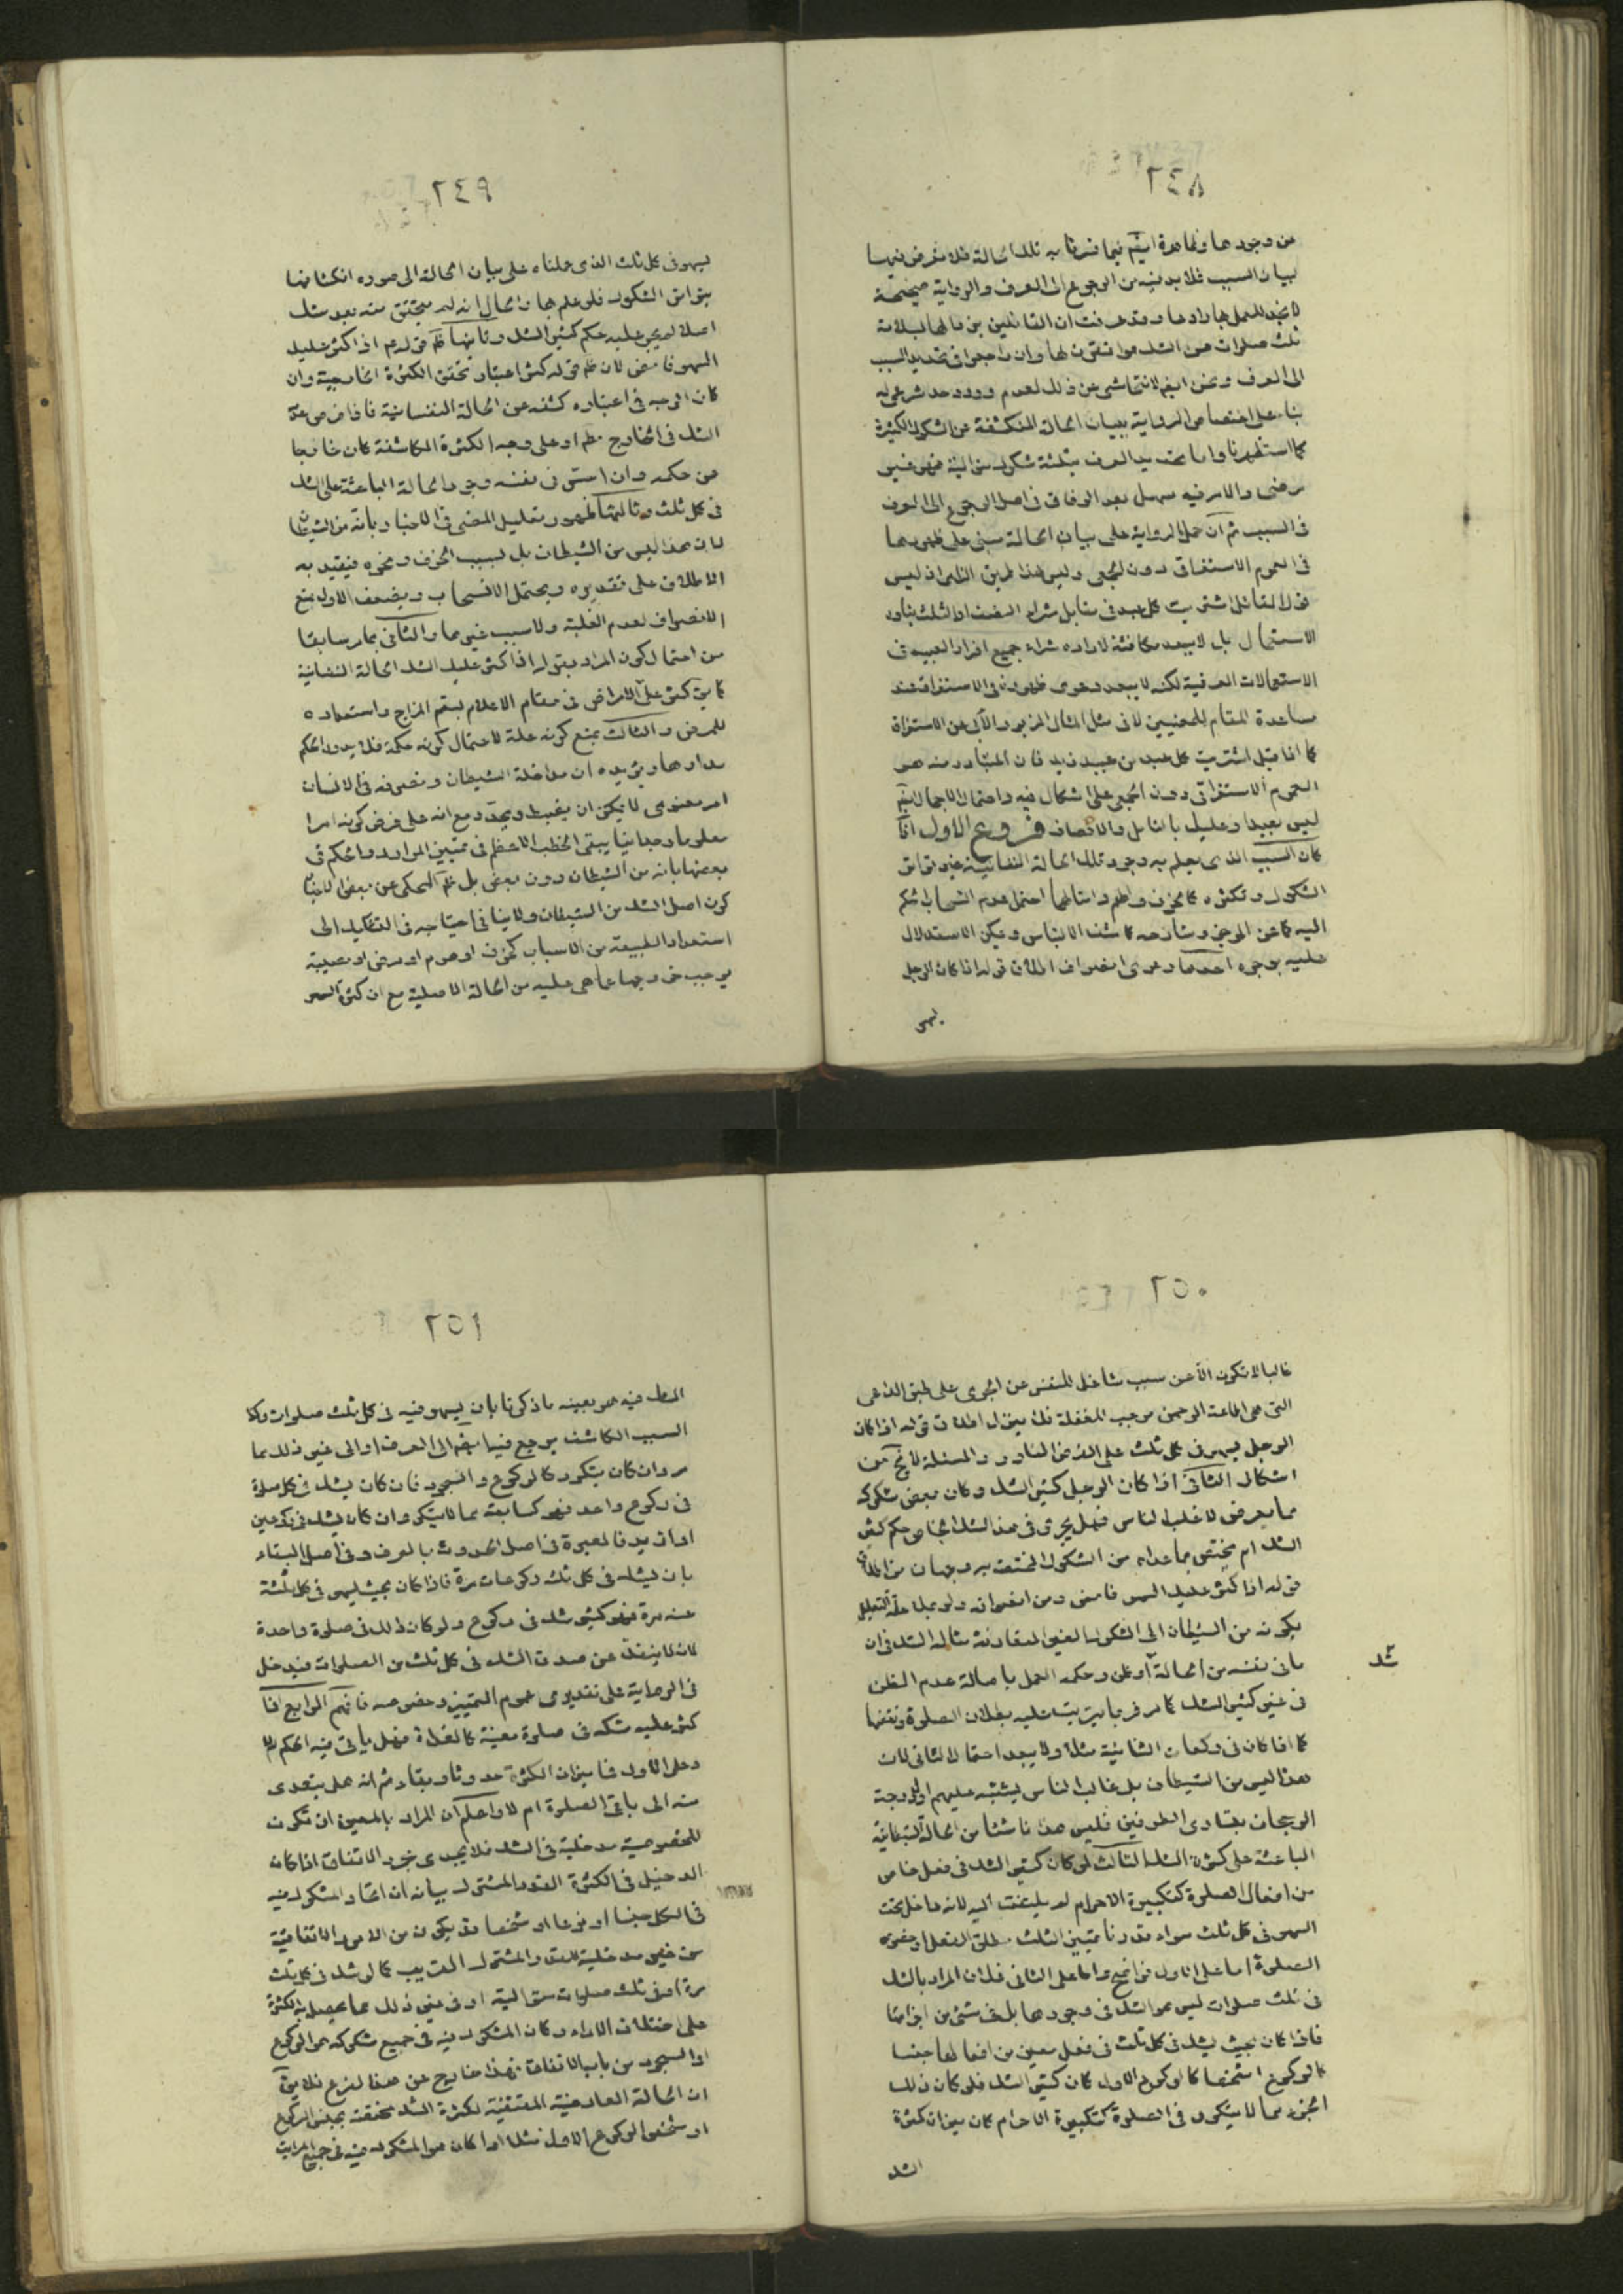 ٢٤٨
من وجودها وظاهرة ايضم فيما فسرنا به تلك الحالة فلا تعرض فيها
لبيان السبب فلا بد فيه من الرجوع الى العرف والرواية صحيحة
لا نجد للعمل بها رادعا وقد عرفت ان القائلين بن مالها لبلامة
ثلث صلوات هو الشك هوا فتون لها وان راجعوا في تحديد السبب
الى العرف ونحن ايضم لا نتحاشى عن ذلك لعدم ورود حد شرعي له
بناء على اختصاص الرواية ببيان الحالة المنكشفة عن الشكوك الكثيرة
كما استظهرنا واما تحديد العرف بثلثة شكوك متوالية فهو غير
مرضى والامر فيه سهل بعد الوفاق في اصل الرجوع الى العرف
في السبب ثم ان حمل الرواية على بيان الحالة مبنى على ظهورها
في العموم الاستغراقي دون المجموعي وليس هذا طريق الظهر اذ ليس
قول القائل اشتريت كل عبد في مقابل شراء النصف او الثلث بنادر
الاستعمال بل لا يبعد مكافئته لارادة شراء جميع افراد العبيد في
الاستعمالات العرفية لكنه لا يبعد دعوى ظهوره في الاستغراق عند
مساعدة المقام للمعنيين لا في مثل المثال المزبور الآبى عن الاستغراق
كما اذا قيل اشتريت كل عبد من عبيد زيد فان المتبادر منه هو
العموم الاستغراقي دون المجموعي على اشكال فيه واحتمال الاجمال ايضم
ليس بعيدا وعليك بالتامل والانصاف فروع الاول اذا
كان السبب الذي يعلم به وجود تلك الحالة النفسانية غير توافق
الشكوك وتكثره كالخوف والهم وامثالهما احتمل عدم انسحاب الحكم
اليه كما عن الموجز وشارحه كاشف الالتباس ويمكن الاستدلال
عليه بوجوه احدها دعوى انصراف اطلاق قوله اذا كان الرجل
يسهو
٢٤٩
يسهو في كل ثلث الذي حملناه على بيان الحالة الى صورة انكشافها
بتوافق الشكوك فلو علم بها والحال انه لم يتحقق منه بعد شك
اصلا لم يجر عليه حكم كثير الشك وثانيها ظم قولهم اذا كثر عليك
السهو فامض لان ظم قوله كثر اعتبار تحقق الكثرة الخارجية وان
كان الوجه في اعتباره كشفه عن الحالة النفسانية فاذا فرض عدم
الشك في الخارج مطم او على وجه الكثرة الكاشفة كان خارجا
عن حكمه وان استقر في نفسه وجود الحالة الباعثة على الشك
في كل ثلث وثالثها ظهور تعليل المضى في الاخبار بانه من الشيطان
لان هذا ليس من الشيطان بل لسبب الخوف ونحوه فيقيد به
الاطلاق على تقديره ويحتمل الانسحاب ويضعف الاول بمنع
الانصراف لعدم الغلبة ولا سبب غيرها والثاني بما مر سابقا
من احتمال كون المراد بقوله اذا كثر عليك الشك الحالة النفسانية
كما يق كثر على الامراض في مقام الاعلام بسقم المزاج واستعداده
للمرض والثالث بمنع كونه علة لاحتمال كونه حكمة فلا يدور الحكم
مدارها ويؤيده ان مداخلة الشيطان وتصرفه في الانسان
امر معنوى لا يمكن ان يضبط ويحدد مع انه على فرض كونه امرا
معلوما وجدانيا يبقى الخطب الاعظم في تمييز الموارد والحكم في
بعضها بانه من الشيطان دون بعض بل ظم المحكى عن بعض الاخبار
كون اصل الشك من الشيطان ولا ينافى احتياجه في التشكيك الى
استعداد الطبيعة من الاسباب كخوف او هم او مرض او مصيبة
يوجب خروجها عما هى عليه من الحالة الاصلية مع ان كثرة السهو
٢٥٠
غالبا لا تكون الا عن سبب شاغل للنفس عن الجرى على طبق الدواعى
التى هى اطاعة الرحمن موجب للغفلة فلا ينزل اطلاق قوله اذا كان
الرجل يسهو في كل ثلث على الفرض النادر والمسئلة لا تخ من
اشكال الثاني اذا كان الرجل كثير الشك وكان بعض شكوكه
مما يعرض لاغلب الناس فهل يجرى في هذا الشك الخاص حكم كثير
الشك ام يختص بما عداه من الشكوك المختصة به وجهان من اطلاق
قوله اذا كثر عليك السهو فامض ومن انصرافه ولو بملاحظة التعليل
بكونه من الشيطان الى الشكوك الغير المتعارفة مثاله الشك في ان
شك
ما في نفسه من الحالة أو ظن وحكمه العمل باصالة عدم الظن
في غير كثير الشك كما مر فربما يترتب عليه بطلان الصلوة ونقضها
كما اذا كان في ركعات الثنائية مثلا ولا يبعد احتمال الثاني لان
هذا ليس من الشيطان بل غالب الناس يشتبه عليهم اول درجة
الرجحان بتساوى الطرفين فليس هذا ناشئا من الحالة الشيطانية
الباعثة على كثرة الشك الثالث لو كان كثير الشك في فعل خاص
من افعال الصلوة كتكبيرة الاحرام لم يلتفت اليه لانه داخل تحت
السهو في كل ثلث سواء قدرنا تمييز الثلث مطلق الفعل او خصوص
الصلوة اما على الاول فواضح واما على الثاني فلان المراد بالشك
في ثلث صلوات ليس هو الشك في وجودها بل في شئ من اجزائها
فاذا كان بحيث يشك في كل ثلث في فعل معين من افعالها جنسا
كالركوع او شخصا كالركوع الاول كان كثير الشك فلو كان ذلك
الجزء مما لا يتكرر في الصلوة كتكبيرة الاحرام كان ميزان كثرة
الشك
٢٥١
الشك فيه هو بعينه ما ذكرنا بان يسهو فيه في كل ثلث صلوات وكذا
السبب الكاشف يرجع فيه ايضم الى العرف او الى غير ذلك مما
مر وان كان يتكرر كالركوع والسجود فان كان يشك في كل صلوة
في ركوع واحد فهو كسابقه مما لا يتكرر وان كان يشك في ركوعين
او ازيد فالعبرة في اصل الحدوث بالعرف وفي اصل البقاء
بان يشك في كل ثلث ركوعات مرة فاذا كان بحيث يسهو في كل ثلثة
منه مرة فهو كثير شك في ركوع ولو كان ذلك في صلوة واحدة
لانه لا ينفك عن صدق الشك في كل ثلث من الصلوات فيدخل
في الرواية على تقديرى عموم التمييز وخصوصه فافهم الرابع اذا
كثر عليه شكه في صلوة معينة كالغداة فهل يأتى فيه الحكم ام لا
وعلى الاول فما ميزان الكثرة حدوثا وبقاء ثم انه هل يتعدى
منه الى باقى الصلوة ام لا واعلم ان المراد بالمعين ان تكون
للخصوصية مدخلية في الشك فلا يجدى مجرد الاتفاق اذا كان
الدخيل في الكثرة القدر المشترك بيانه ان اتحاد المشكوك فيه
في الكل جنسا او نوعا او شخصا قد يكون من الامور الاتفاقية
من غير مدخلية للقدر المشترك القريب كما لو شك في كل ثلث
مرة او في ثلث صلوات متوالية او في غير ذلك مما يحصل به الكثرة
على اختلاف الاراء وكان المشكوك فيه في جميع شكوكه هو الركوع
او السجود من باب الاتفاق فهذا خارج عن هذا الفرع فلا يق
ان الحالة العارضية المقتضية لكثرة الشك مختصة بجنس الركوع
او شخص الركوع الاول مثلا اذا كان هو المشكوك فيه في جميع المراتب